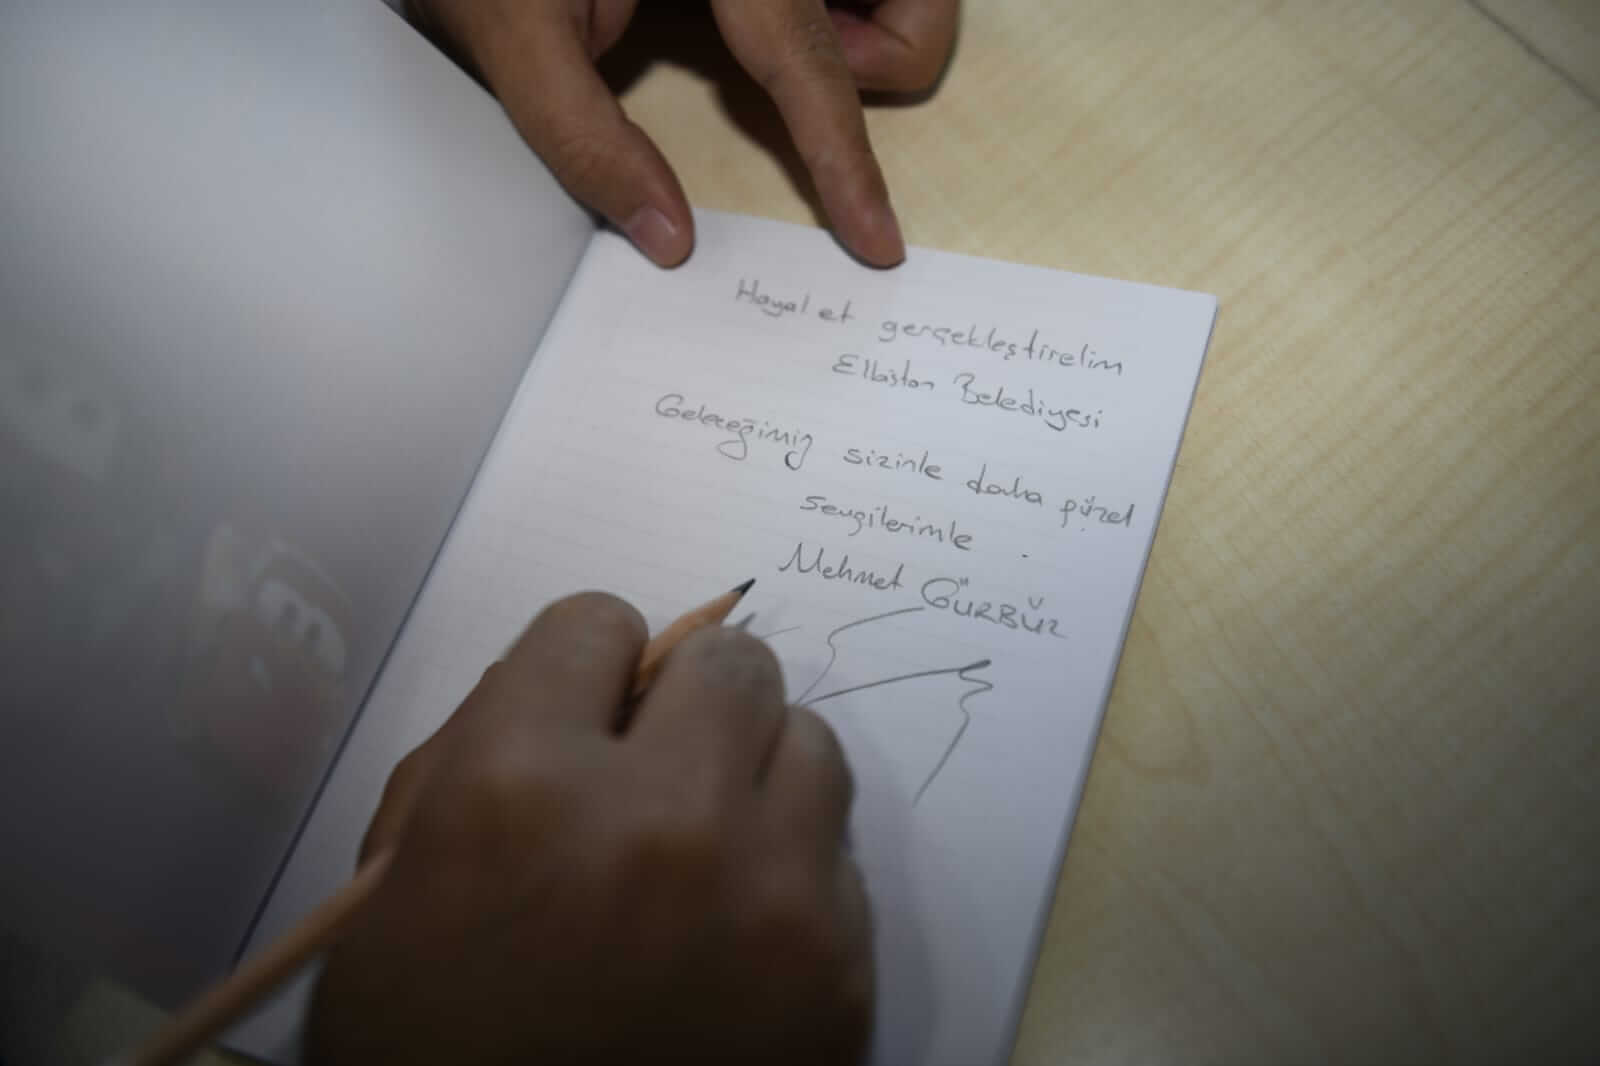 Hayal et gerçekleştirelim
Elbistan Belediyesi
Geleceğimiz sizinle daha güzel
sevgilerimle .
Mehmet GÜRBÜZ